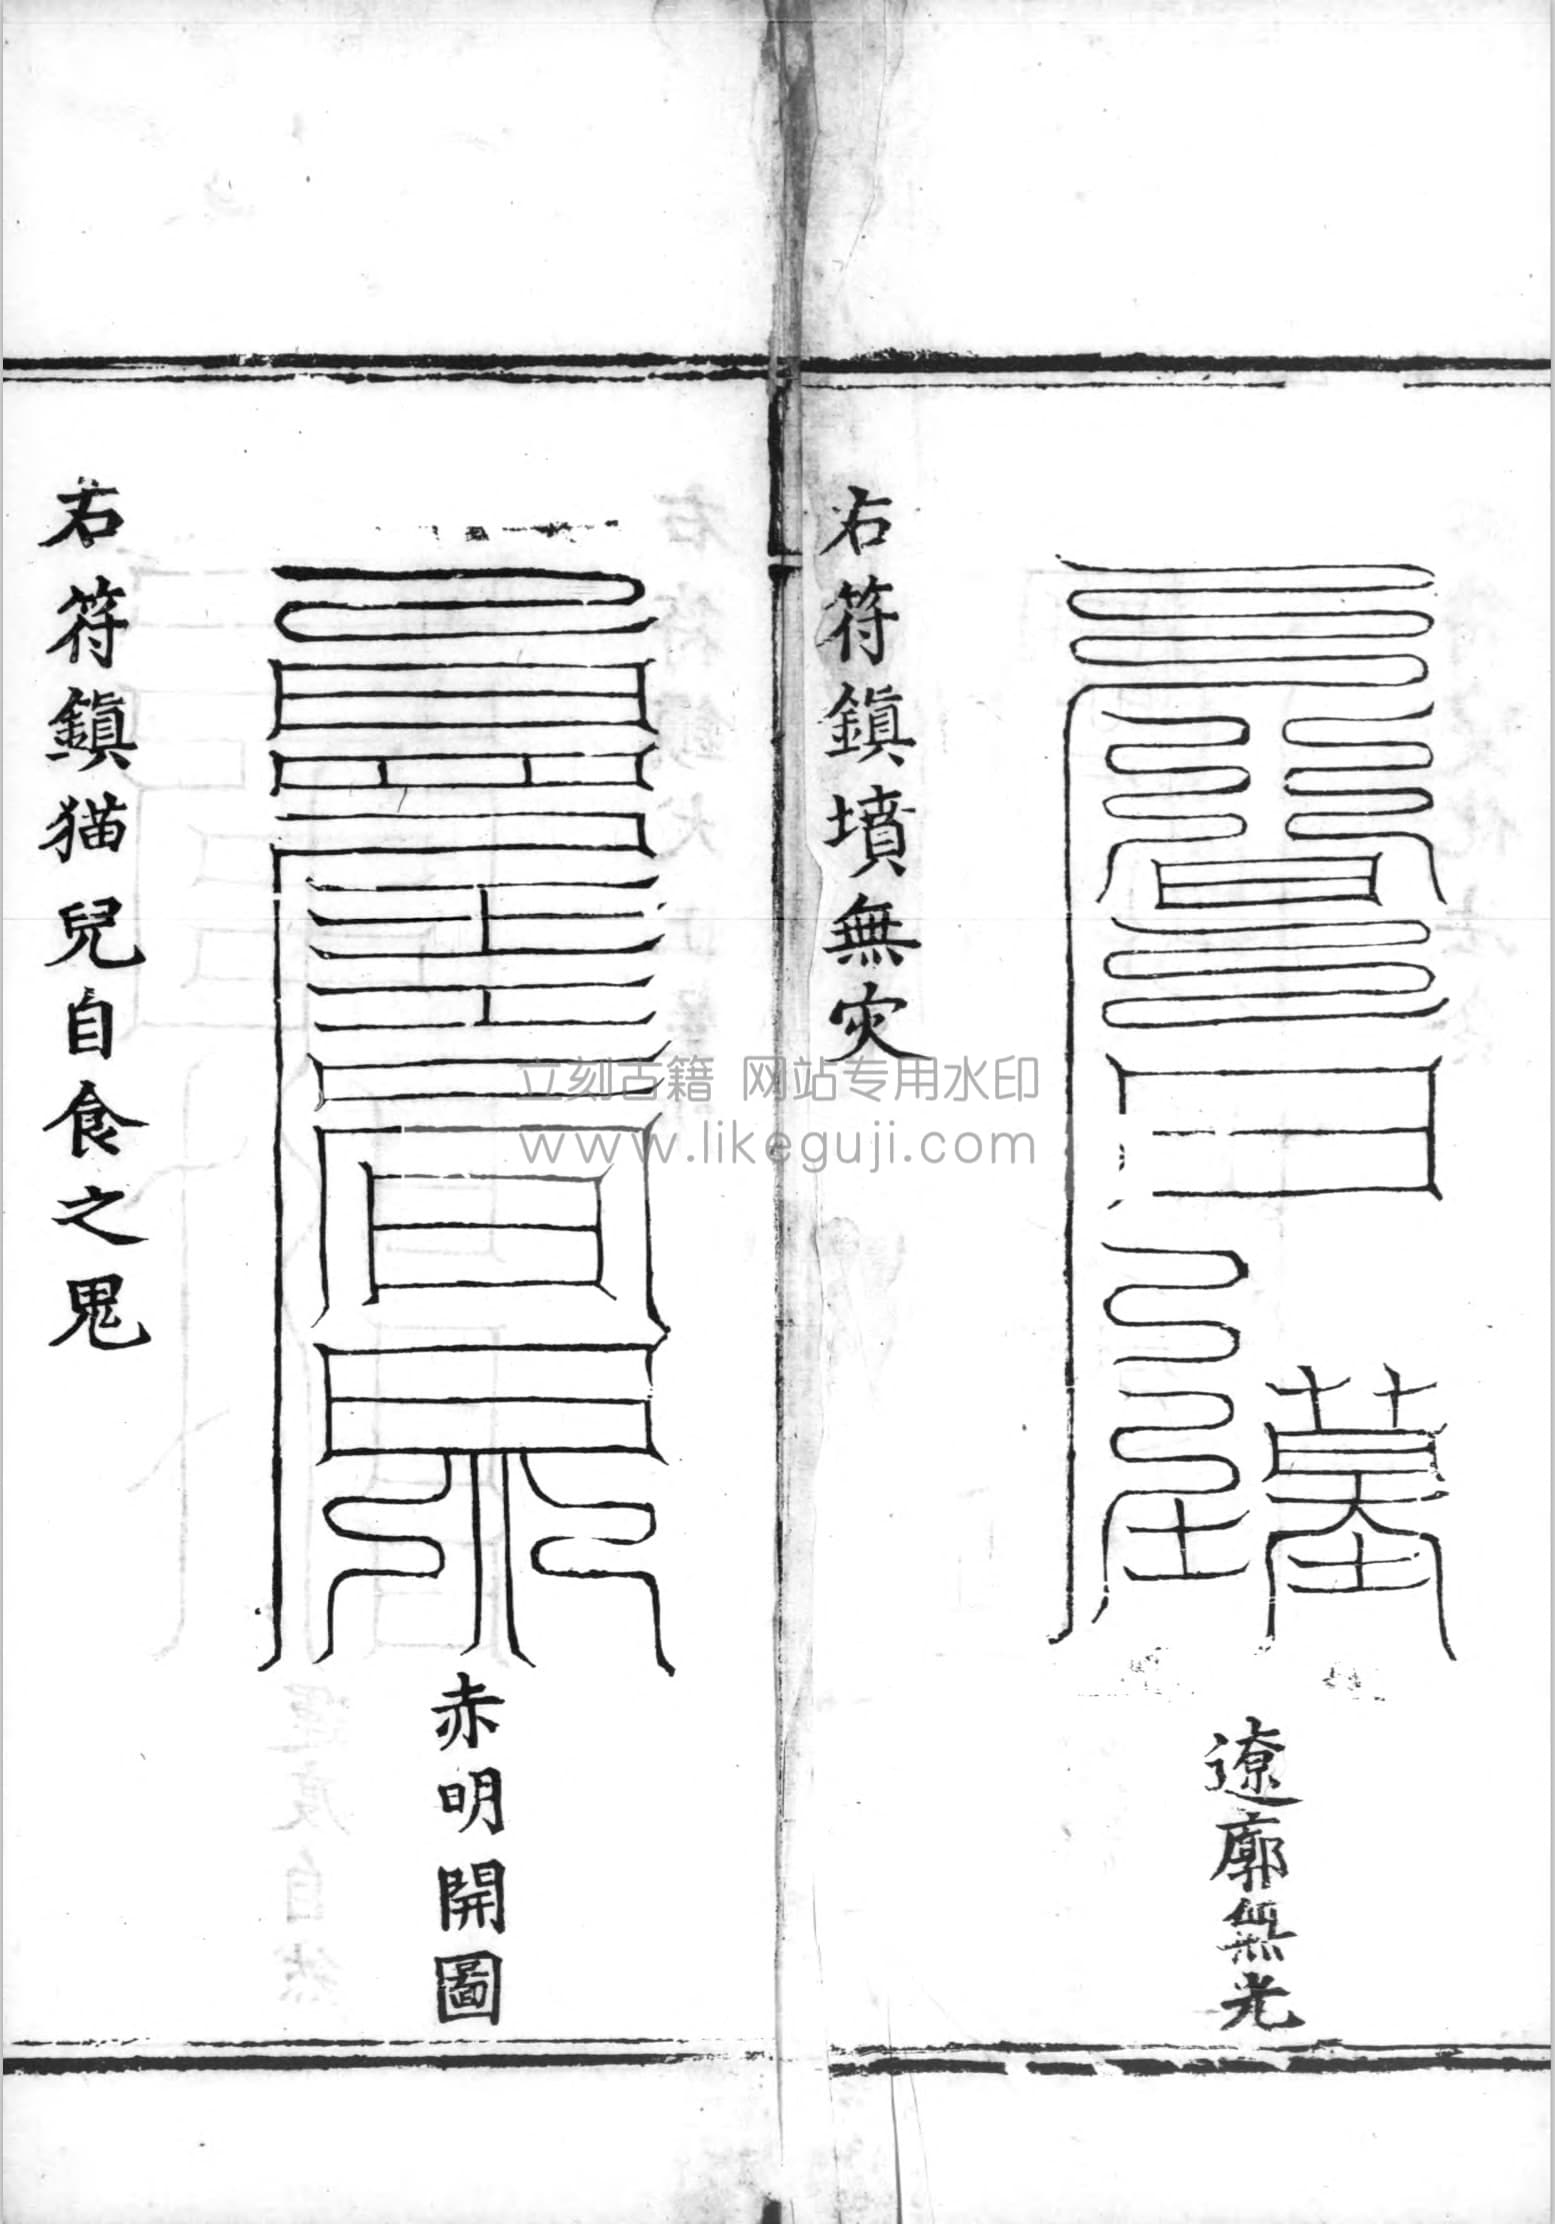 遼廓無光
右符鎮墳無灾
赤明開圖
右符鎮猫兒自食之鬼
立刻古籍 网站专用水印
www.likeguji.com